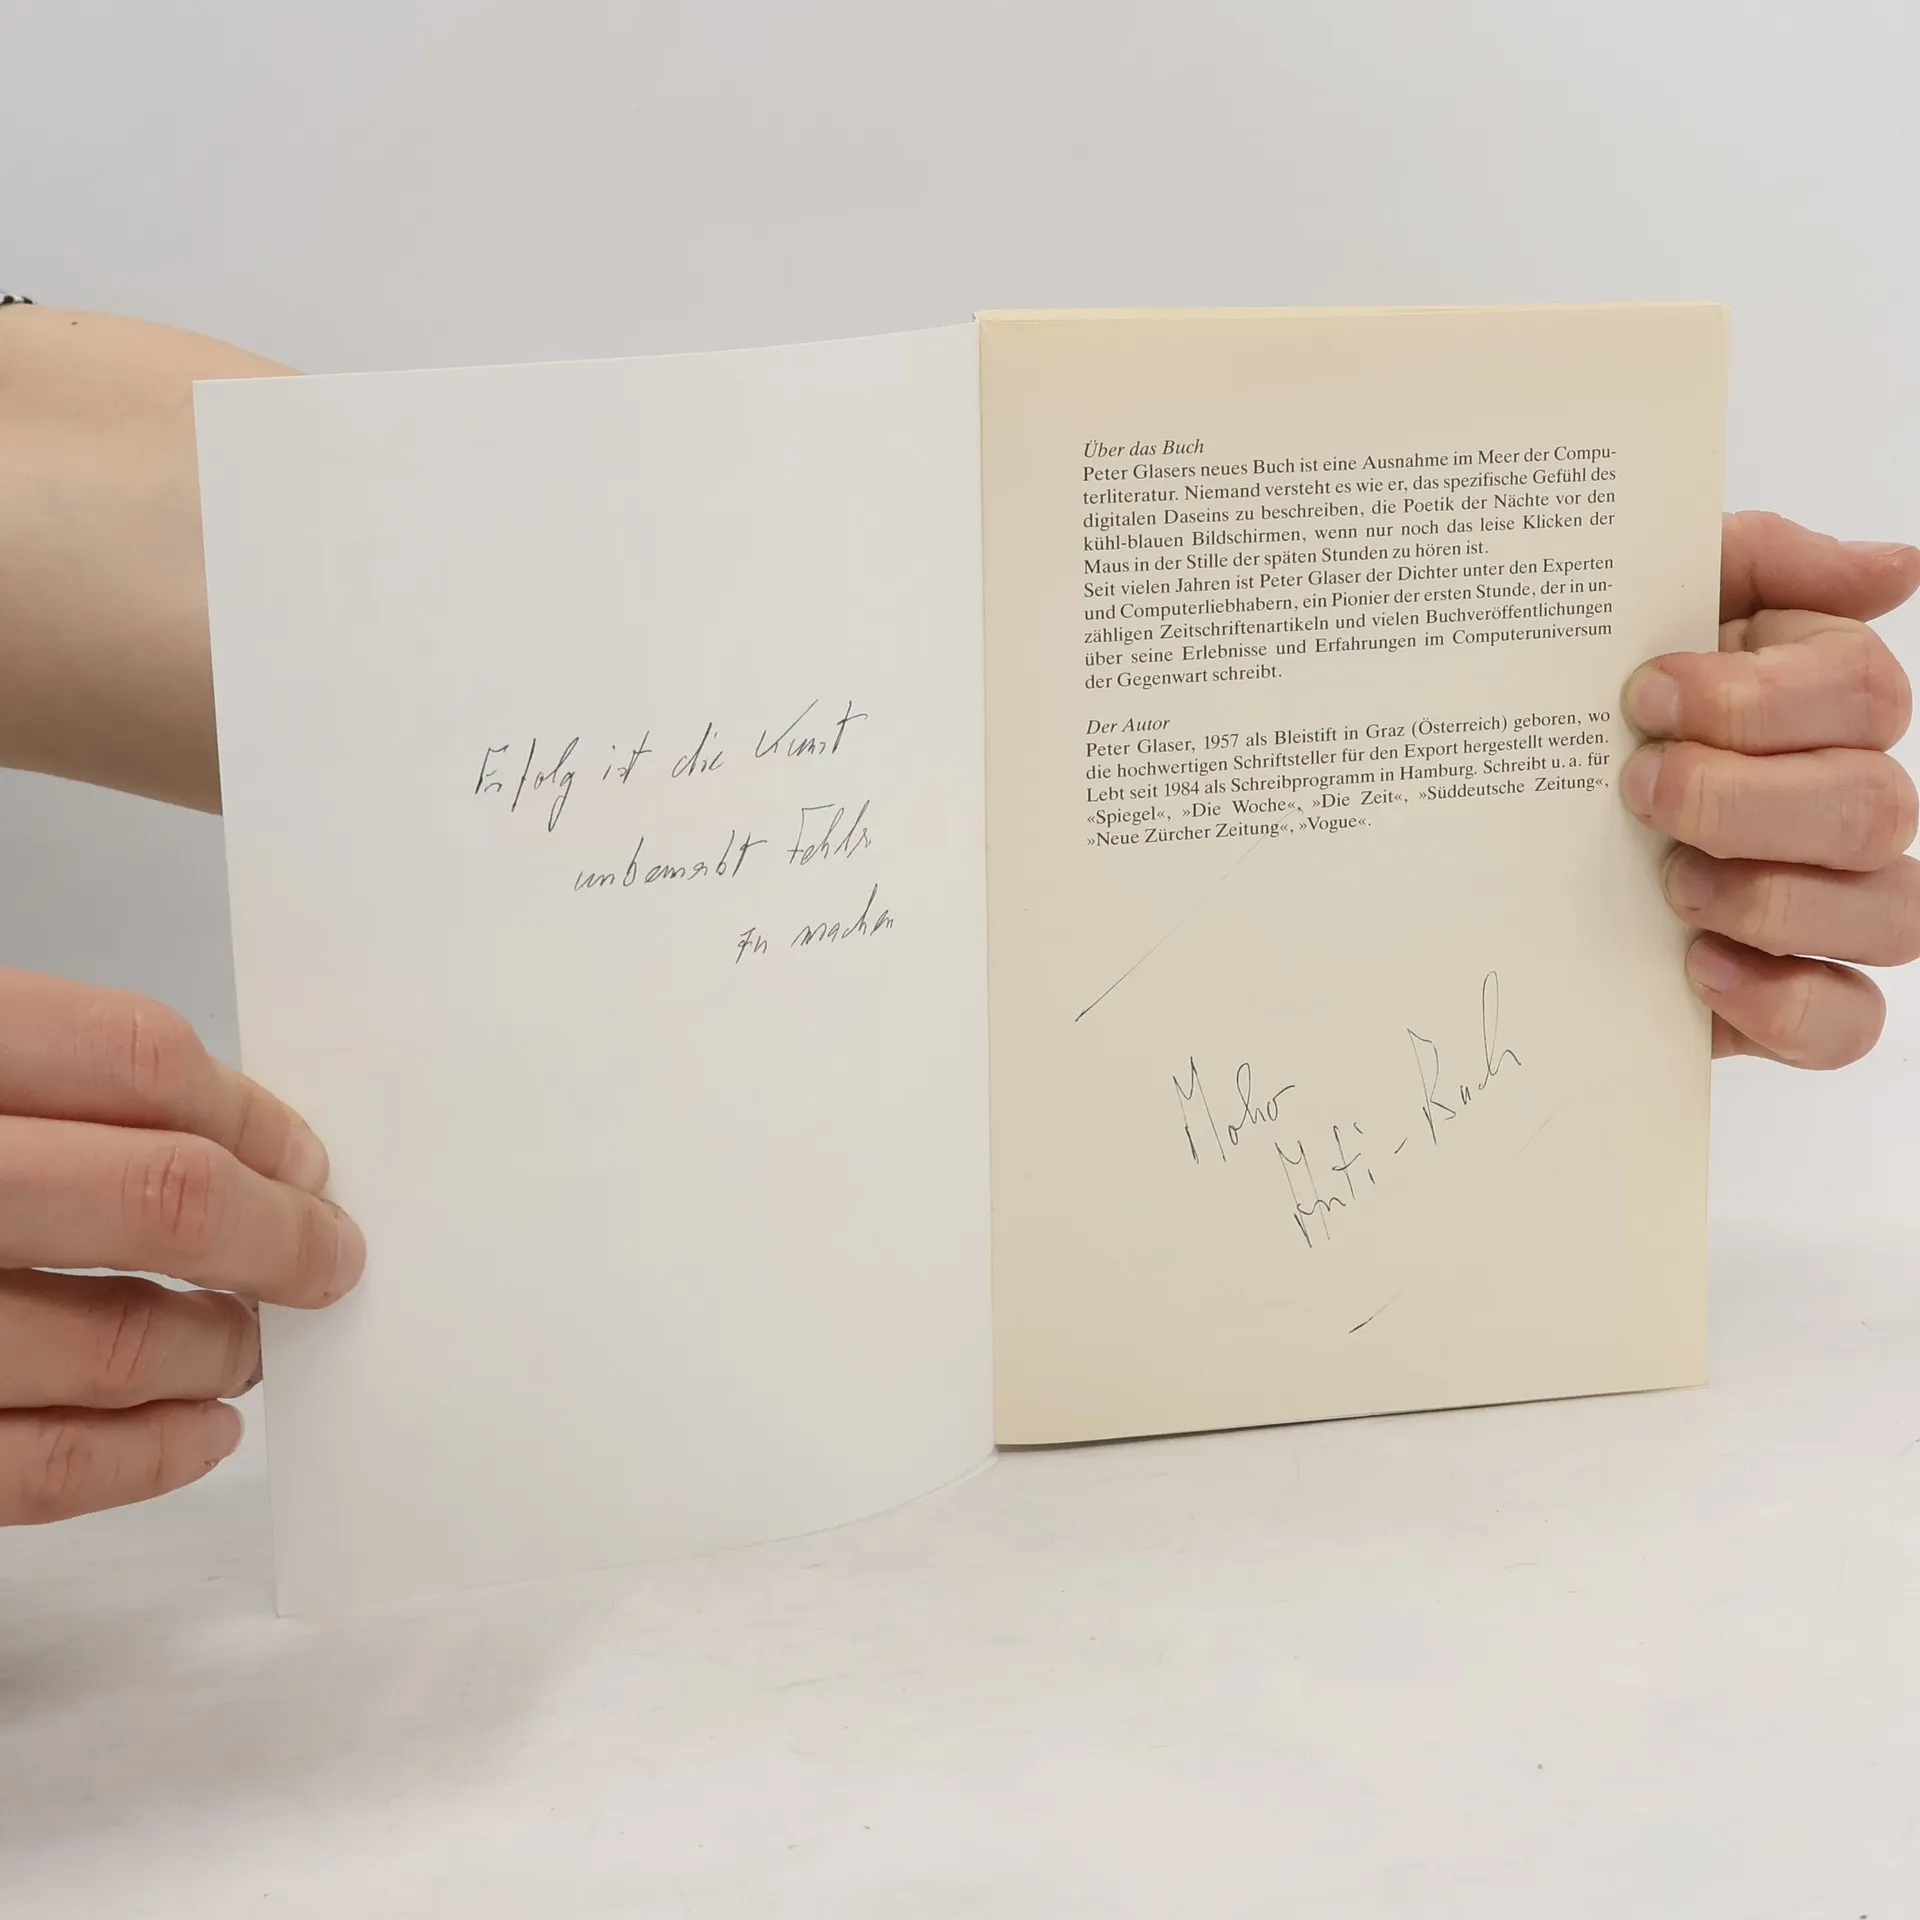 Erfolg ist die Kunst
unbemerkt Fehler
zu machen
Über das Buch
Peter Glasers neues Buch ist eine Ausnahme im Meer der Compu-
terliteratur. Niemand versteht es wie er, das spezifische Gefühl des
digitalen Daseins zu beschreiben, die Poetik der Nächte vor den
kühl-blauen Bildschirmen, wenn nur noch das leise Klicken der
Maus in der Stille der späten Stunden zu hören ist.
Seit vielen Jahren ist Peter Glaser der Dichter unter den Experten
und Computerliebhabern, ein Pionier der ersten Stunde, der in un-
zähligen Zeitschriftenartikeln und vielen Buchveröffentlichungen
über seine Erlebnisse und Erfahrungen im Computeruniversum
der Gegenwart schreibt.
Der Autor
Peter Glaser, 1957 als Bleistift in Graz (Österreich) geboren, wo
die hochwertigen Schriftsteller für den Export hergestellt werden.
Lebt seit 1984 als Schreibprogramm in Hamburg. Schreibt u. a. für
«Spiegel«, »Die Woche«, »Die Zeit«, »Süddeutsche Zeitung«,
»Neue Zürcher Zeitung«, »Vogue«.
Anti-Buch